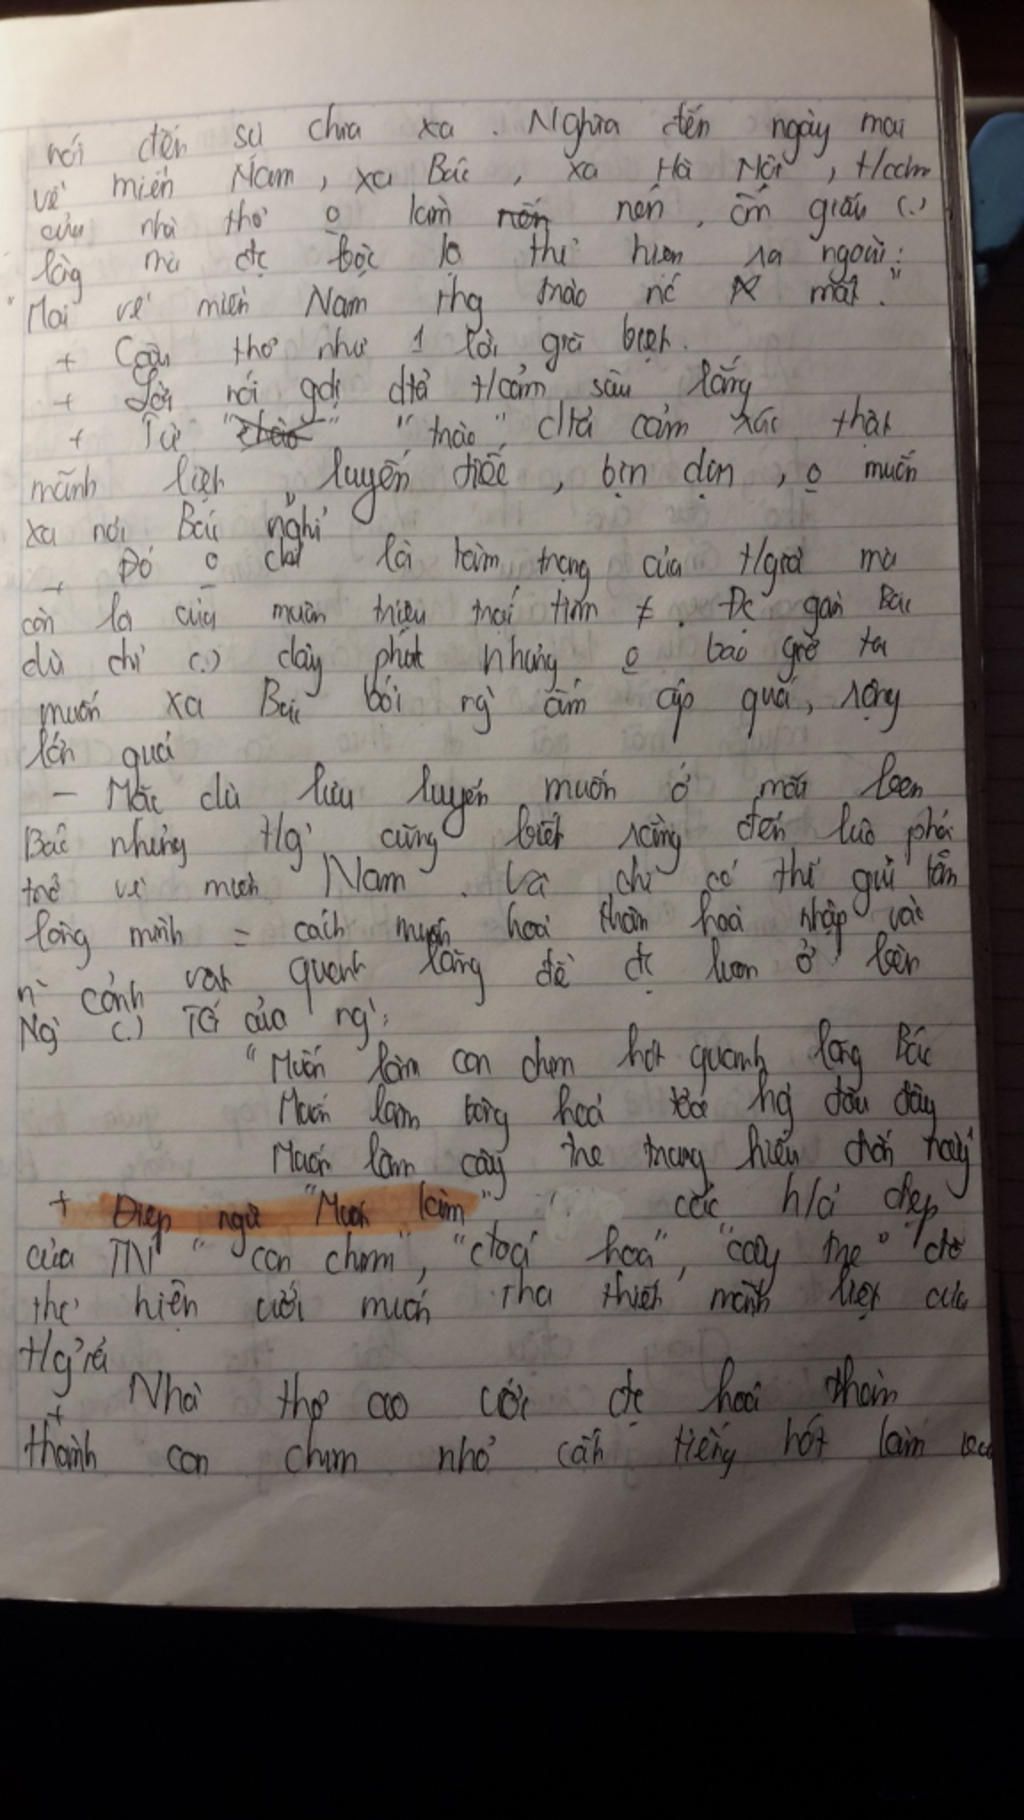 nói đến sự chia xa. Nghĩa đến ngày mai
về miền Nam, xa Bác, xa Hà Nội, t/cảm
của nhà thơ o kìm nén, ẩn giấu (.)
lòng mà đc bộc lộ thể hiện ra ngoài:
"Mai về miền Nam thg trào nc mắt."
+ Câu thơ như 1 lời giã biệt.
+ Lời nói giản dị d/tả t/cảm sâu lắng
+ Từ "trào" d/tả cảm xúc thật
mãnh liệt luyến tiếc, bịn rịn, o muốn
xa nơi Bác nghỉ
+ Đó o chỉ là tâm trạng của t/giả mà
còn là của muôn triệu trái tim ≠. Đc gần Bác
dù chỉ (.) giây phút nhưng o bao giờ ta
muốn xa Bác bởi ng` ấm áp quá, rộng
lớn quá
- Mặc dù lưu luyến muốn ở mãi bên
Bác nhưng t/g` cũng biết rằng đến lúc phải
trở về miền Nam. Và chỉ có thể gửi tấm
lòng mình = cách muốn hoá thân hoà nhập vào
n~ cảnh vật quanh lăng để đc luôn ở bên
Ng` (.) TG của ng`:
"Muốn làm con chim hót quanh lăng Bác
Muốn làm bông hoa toả hg đâu đây
Muốn làm cây tre trung hiếu chốn này"
+ Điệp ngữ "Muốn làm" các h/ả đẹp
của TN "con chim", "đoá hoa", "cây tre" đã
thể hiện ước muốn tha thiết mãnh liệt của
t/giả
+ Nhà thơ ao ước đc hoá thân
thành con chim nhỏ cất tiếng hót làm